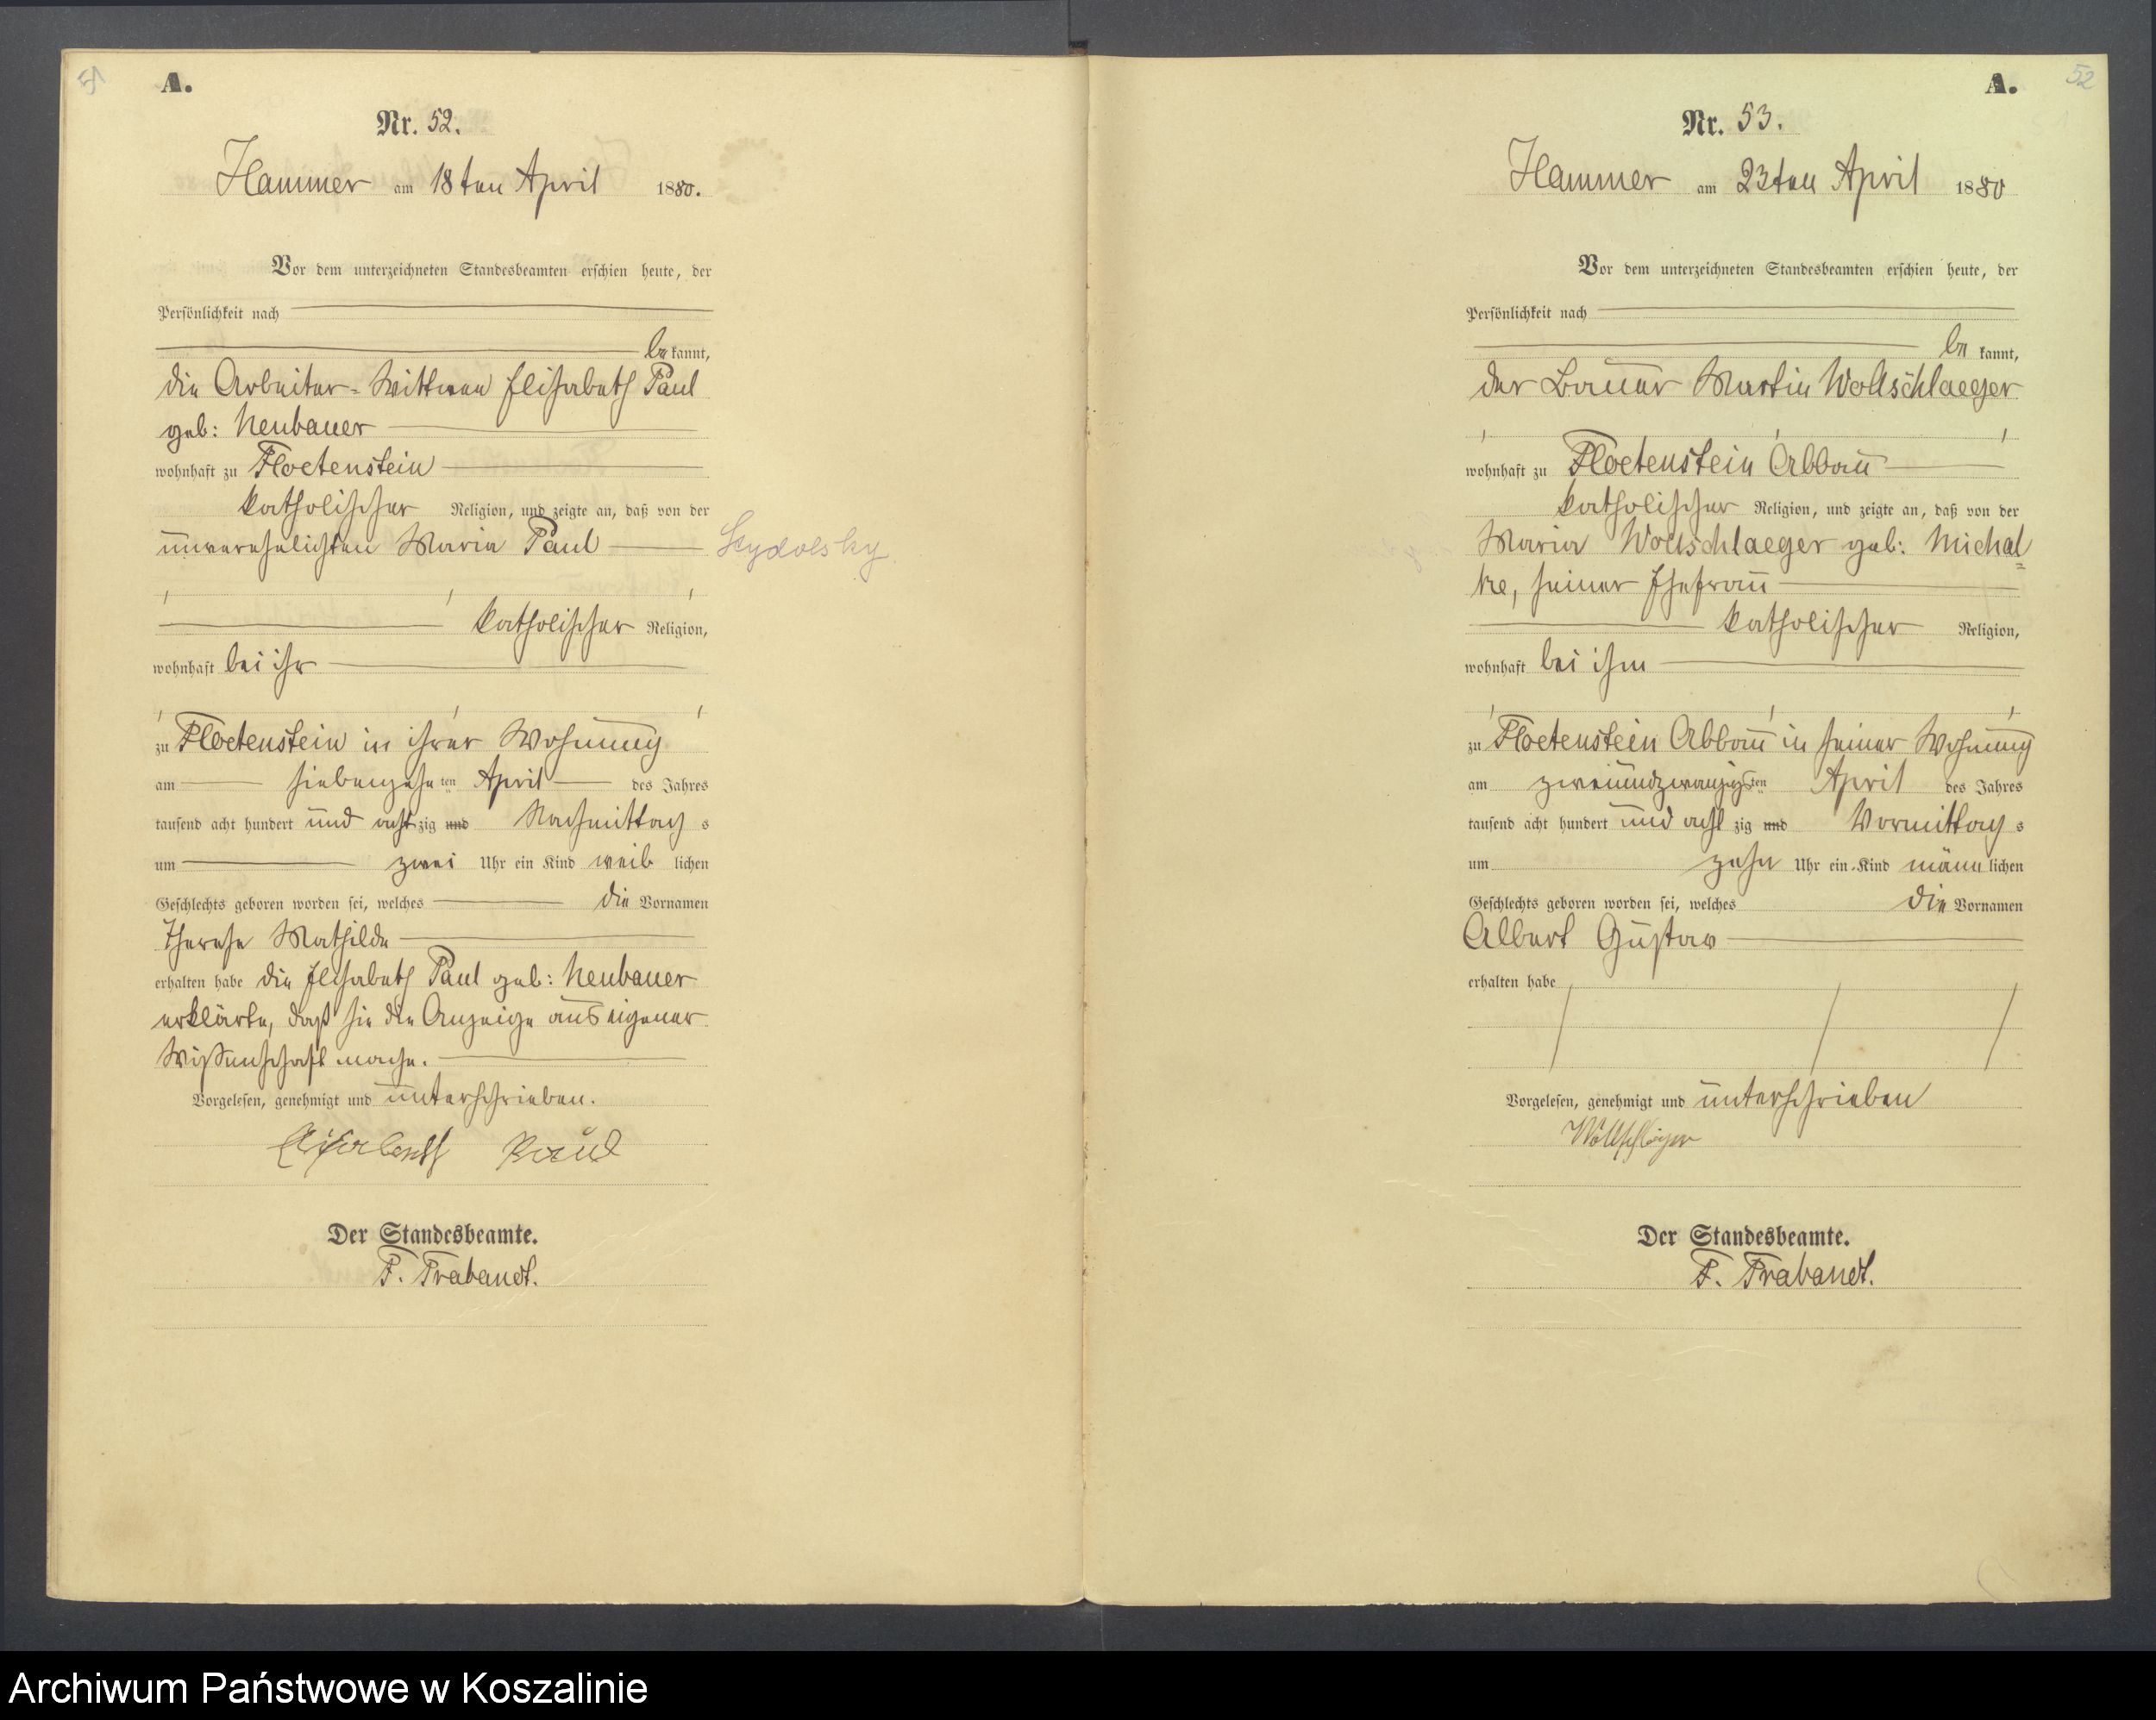 51
A.
Nr. 52.
Hammer am 18ten April 1880.
Vor dem unterzeichneten Standesbeamten erschien heute, der
Persönlichkeit nach
bekannt,
die Arbeiter-Wittwee Elisabeth Paul
geb: Neubauer
wohnhaft zu Floetenstein
katholischer Religion, und zeigte an, daß von der
unverehelichten Maria Paul
katholischer Religion,
wohnhaft bei ihr
zu Floetenstein in ihrer Wohnung
am siebenzehnten April des Jahres
tausend acht hundert und achtzig und Nachmittags
um zwei Uhr ein Kind weiblichen
Geschlechts geboren worden sei, welches die Vornamen
Therese Mathilde
erhalten habe die Elisabeth Paul geb: Neubauer
erklärte, daß sie die Anzeige aus eigener
Wissenschaft mache.
Vorgelesen, genehmigt und unterschrieben.
Elisabeth Paul
Der Standesbeamte.
F. Trabandt.
A.
52
Nr. 53.
Hammer am 23ten April 1880
Vor dem unterzeichneten Standesbeamten erschien heute, der
Persönlichkeit nach
bekannt,
der Bauer Martin Wollschlaeger
wohnhaft zu Floetenstein Abbau
katholischer Religion, und zeigte an, daß von der
Maria Wollschlaeger geb: Michal=
ke, seiner Ehefrau
katholischer Religion,
wohnhaft bei ihm
zu Floetenstein Abbau in seiner Wohnung
am zweiundzwanzigsten April des Jahres
tausend acht hundert und achtzig und Vormittags
um zehn Uhr ein Kind männlichen
Geschlechts geboren worden sei, welches die Vornamen
Albert Gustav
erhalten habe
Vorgelesen, genehmigt und unterschrieben
Wollschläger
Der Standesbeamte.
F. Trabandt.
Archiwum Państwowe w Koszalinie